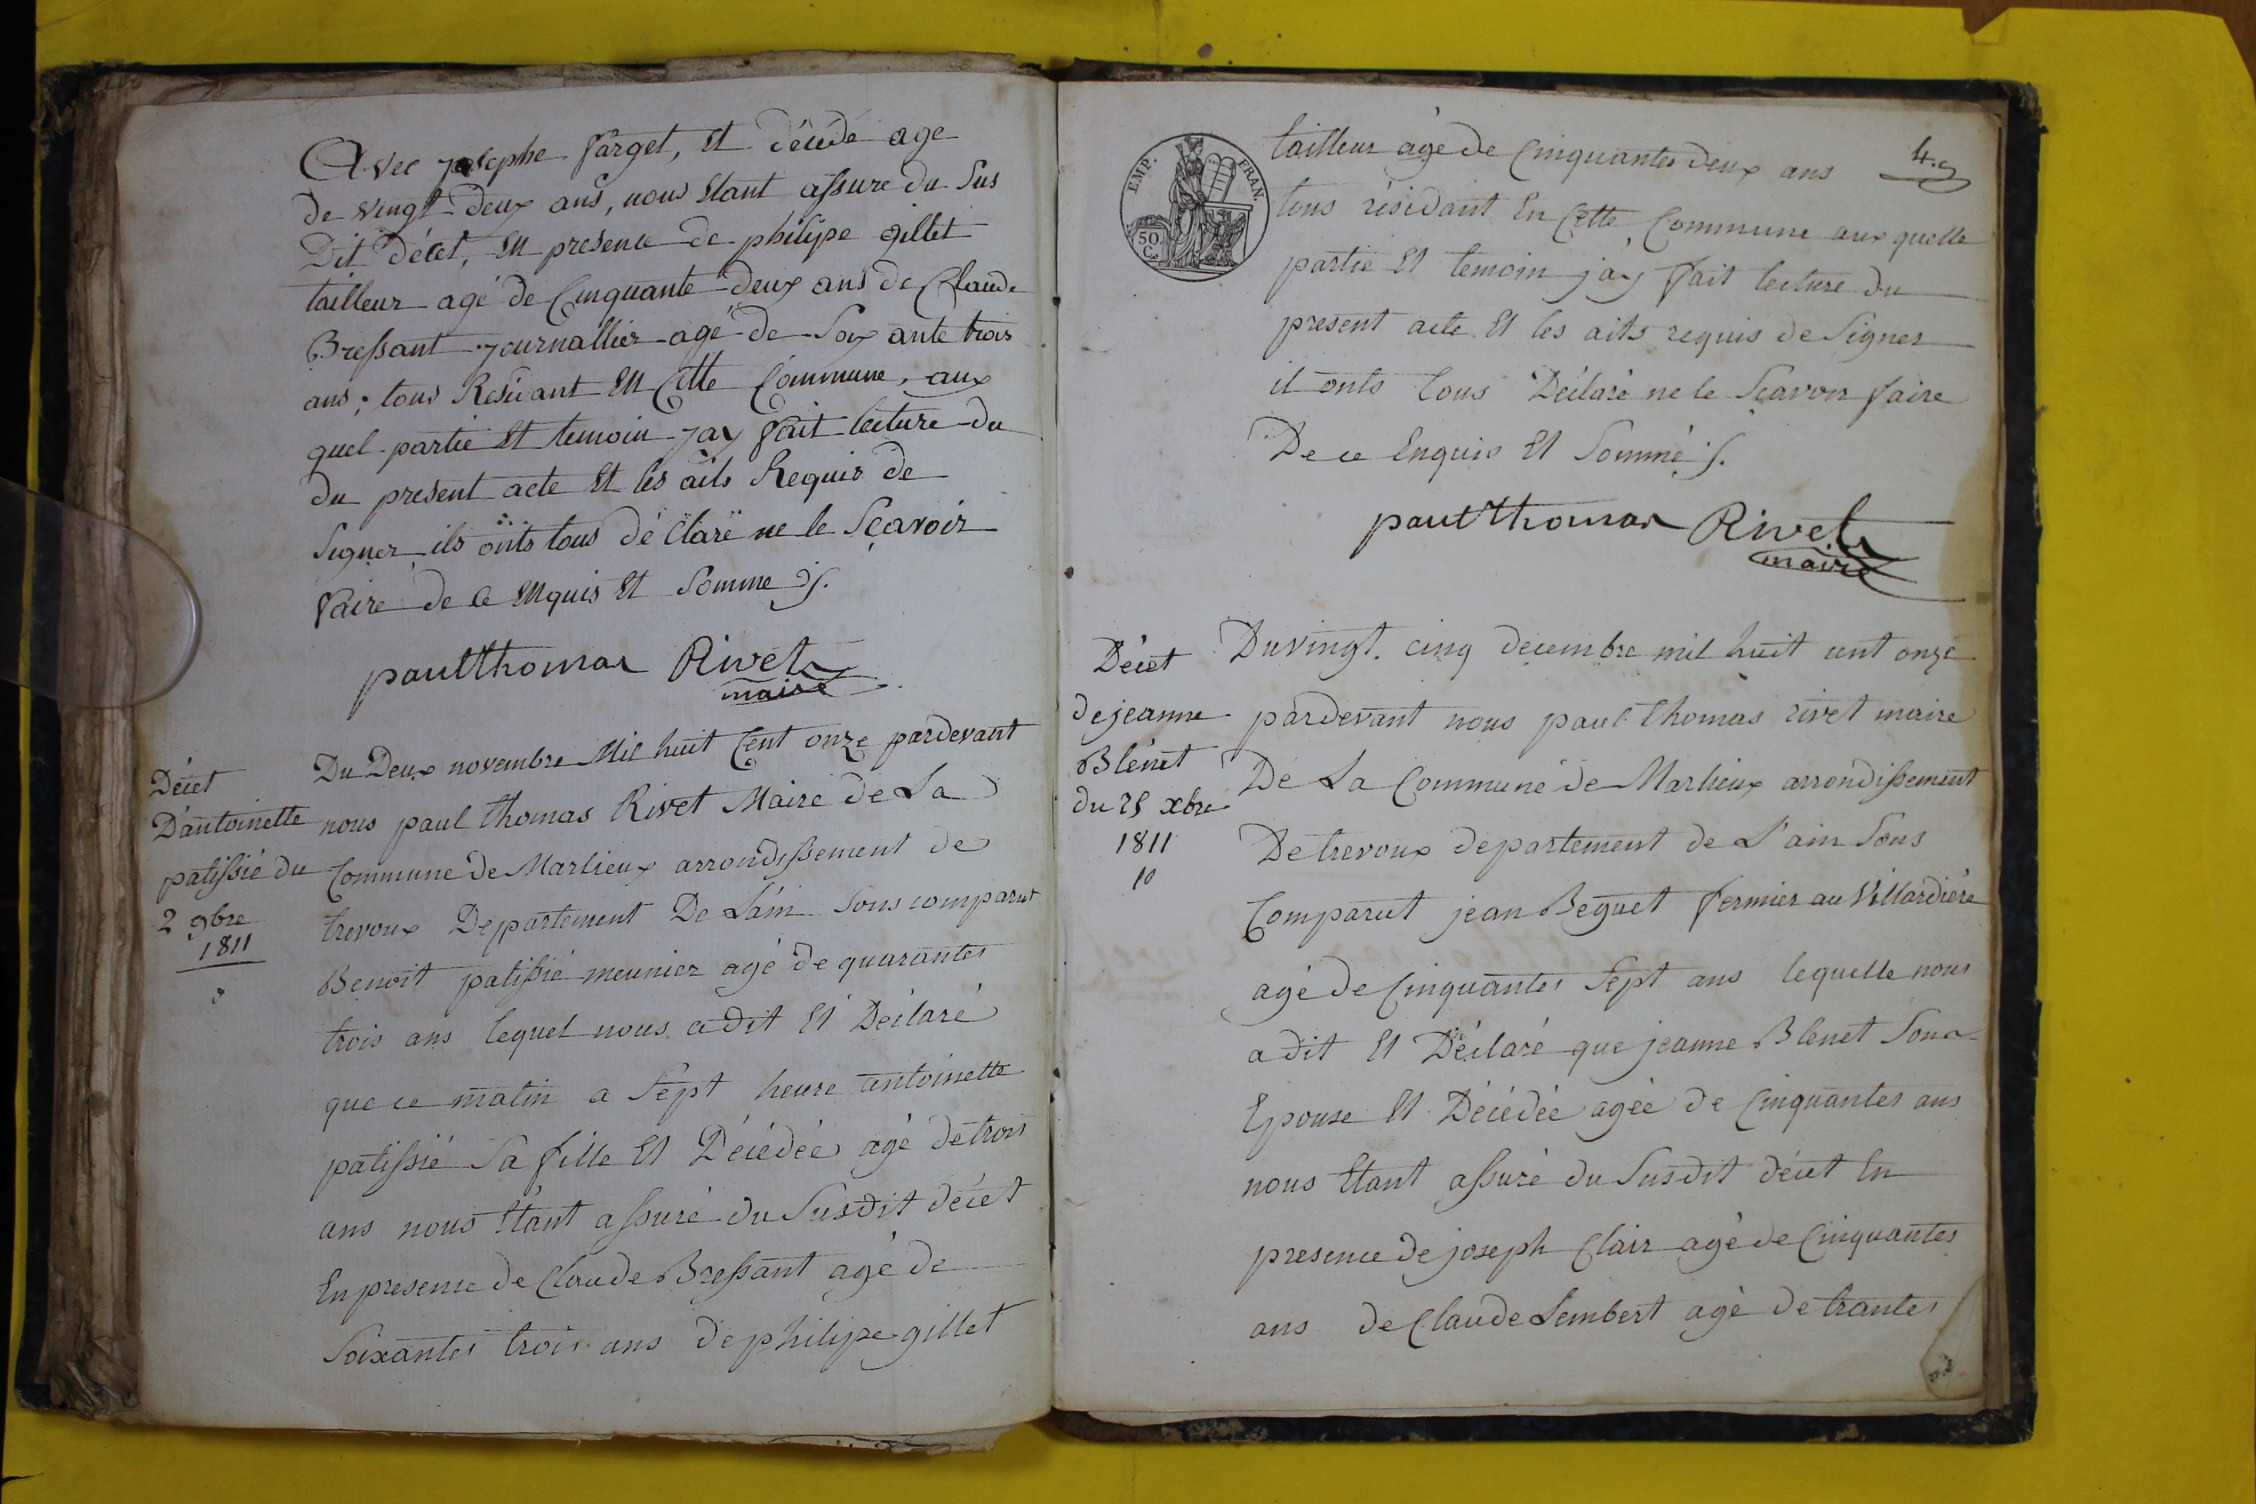 Avec josephe farget, Et décédé age
de vingt deux ans, nous Etant assure du Sus
Dit décet, En presence de philipe gillet
tailleur agé de Cinquante deux ans de Claude
Bressant journallier agé de Soix ante trois
ans; tous Resi ant En Cette Commune, aux
quel partie Et temoin jay fait lecture du
du present acte Et les aits Requis de
Signer ils onts tous dé Claré ne le Sçavoir
faire de ce Enquis Et Sommé ./.
paul thomas Rivet
maire
Décet
D'antoinette
patissié du
2 9bre
1811
9
Du Deux novembre Mil huit Cent onze pardevant
nous paul thomas Rivet Maire de La
Commune de Marlieux arrondissement de
trevoux Departement De Lain Sons comparut
Benoit patissié meunier agé de quarantes
trois ans lequel nous a dit Et Déclaré
que ce matin a Sept heure antoinette
patissié Sa fille Et Décédée agé de trois
ans nous Etant assuré du Susdit décet
En presence de Claude Bressant agé de
Soixantes trois ans de philipe gillet
EMP. FRAN.
50
C.
4.e
tailleur agé de Cinquantes deux ans
tous résidant En Cette Commune aux quelle
partie Et temoin j'ay fait lecture du
present acte Et les aits requis de Signer
il onts tous Déclaré ne le Sçavoir faire
De ce Enquis Et Sommé ./.
paul thomas Rivet
maire
Décet
de jeanne
Blénet
du 25 xbre
1811
10
Du vingt. cinq decembre mil huit cent onze
pardevant nous paul thomas rivet maire
De La Commune de Marlieux arrondissement
De trevoux departement de L'ain Sons
Comparut jean Beguet fermier au Villardiére
agé de Cinquantes Sept ans lequelle nous
a dit Et Déclaré que jeanne Blenet Son a
Epouse Et Décédée agée de Cinquantes ans
nous Etant assuré du Susdit décet En
presence de joseph Clair agé de Cinquantes
ans de Claude Lembert agé de trantes